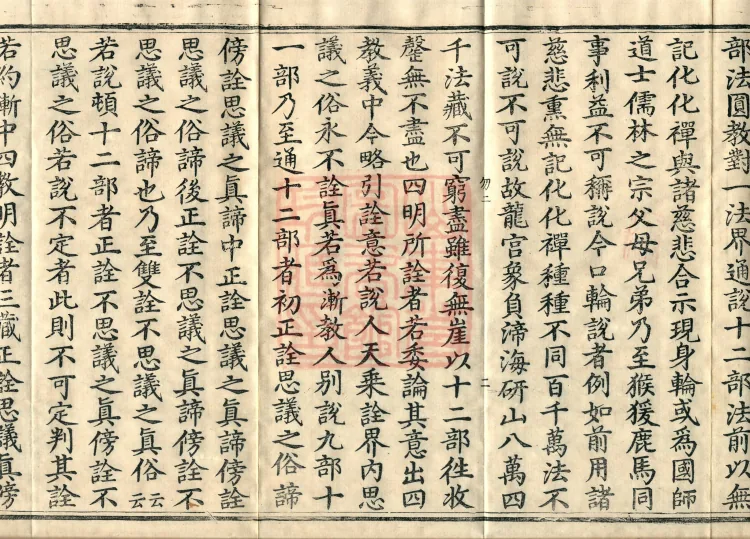 部法圓教對一法界通說十二部法前以無
記化化禪與諸慈悲合示現身輪或為國師
道士儒林之宗父母兄弟乃至猴猨鹿馬同
事利益不可稱說今口輪說者例如前用諸
慈悲熏無記化化禪種種不同百千萬法不
可說不可說故龍宮象負渧海研山八萬四
勿二
二
千法藏不可窮盡雖復無崖以十二部徃收
罄無不盡也四明所詮者若委論其意出四
教義中今略引詮意若說人天乘詮界內思
議之俗永不詮眞若爲漸教人別說九部十
一部乃至通十二部者初正詮思議之俗諦
傍詮思議之眞諦中正詮思議之眞諦傍詮
思議之俗諦後正詮不思議之眞諦傍詮不
思議之俗諦也乃至雙詮不思議之眞俗云云
若說頓十二部者正詮不思議之眞傍詮不
思議之俗若說不定者此則不可定判其詮
若約漸中四教明詮者三藏正詮思議眞傍